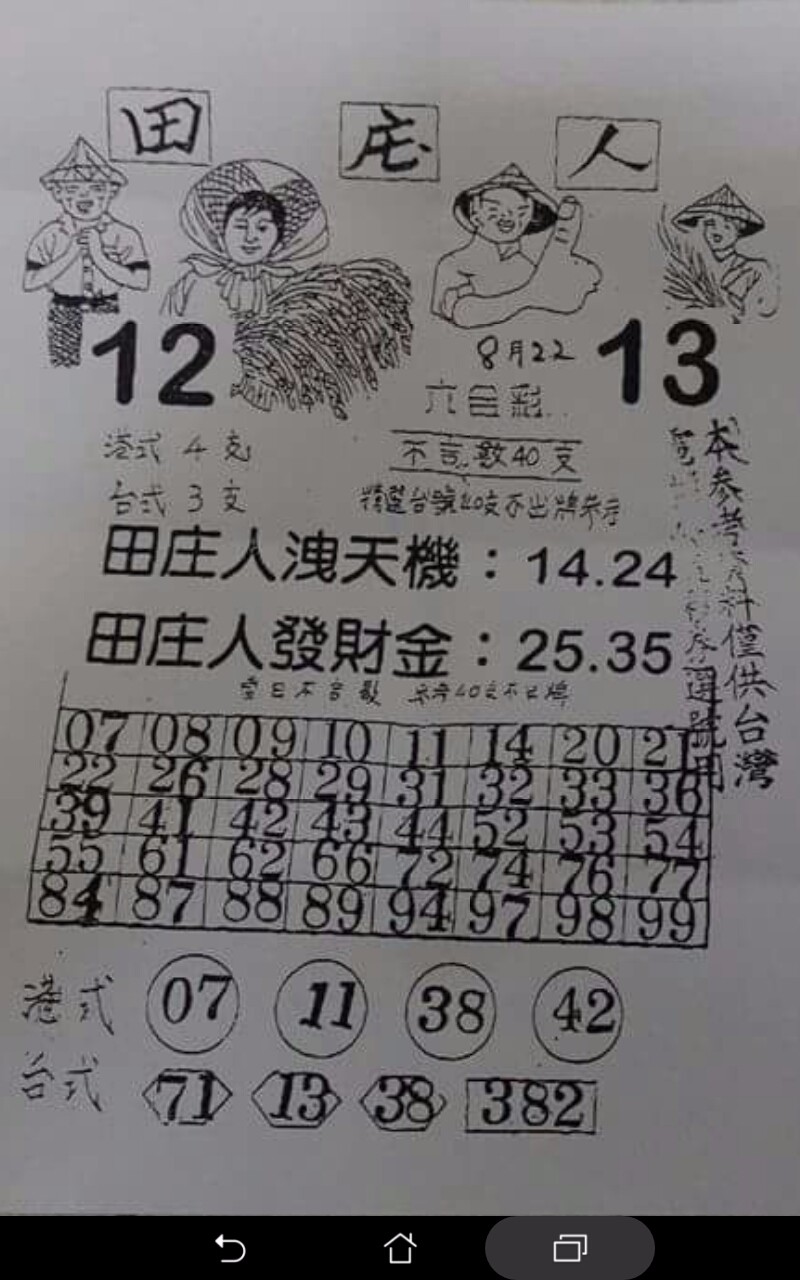 田庄人
12
8月22
13
六合彩
港式 4支
不言數40支
台式 3支
精選台號40支不出牌參考
田庄人洩天機：14.24
田庄人發財金：25.35
07 08 09 10 11 14 20 21
22 26 28 29 31 32 33 36
39 41 42 43 44 52 53 54
55 61 62 66 72 74 76 77
84 87 88 89 94 97 98 99
本參考資料僅供台灣
選號用
港式 07 11 38 42
台式 71 13 38 382